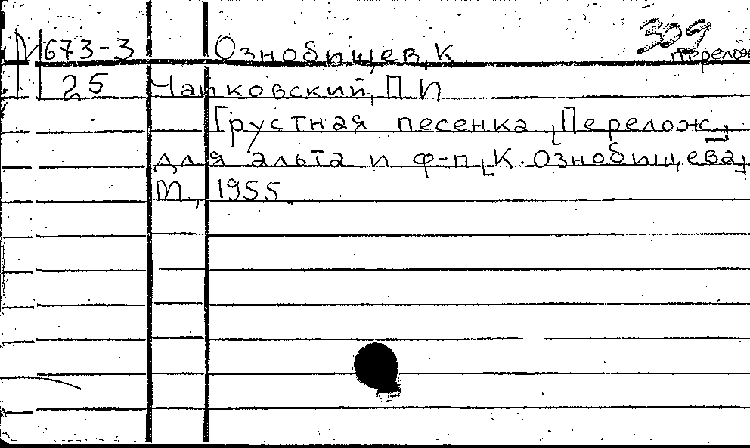 673-3 Ознобищев, К 309
перелож
25 Чайковский, П И
Грустная песенка. [Перелож.
для альта и ф-п. К. Ознобищева]
М., 1955.